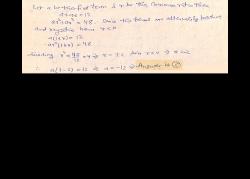 Let a be the first term & r be the common ratio then
a+ar = 12
ar²+ar³ = 48. Since the terms are alternately positive
and negative hence r<0
a(1+r) = 12
ar²(1+r) = 48
dividing r² = 48/12 = 4 ⇒ r = ±2 Since r<0 ⇒ r = -2
⇒ a(1-2) = 12 ⇒ a = -12 ⇒ Answer is